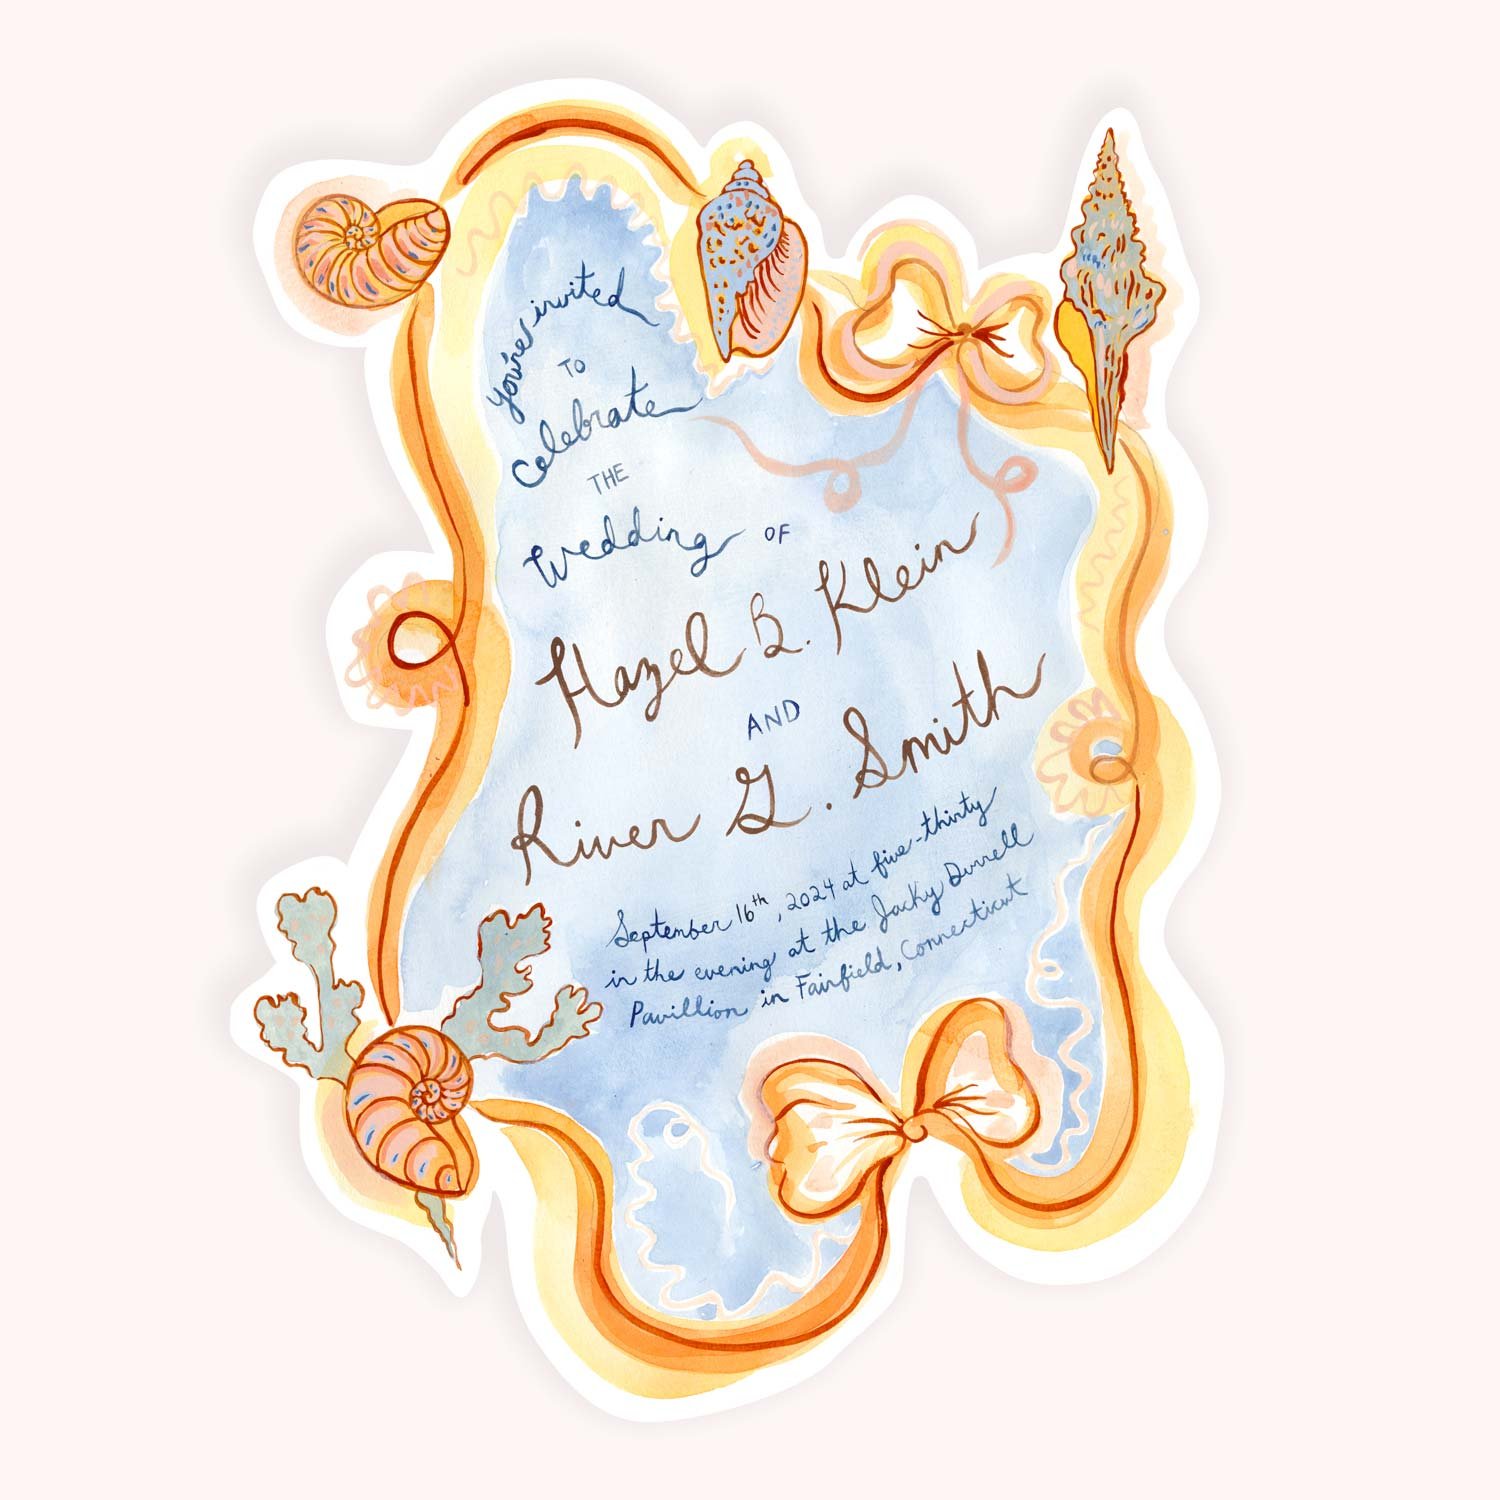 you're invited
TO
Celebrate
THE
Wedding OF
Hazel B. Klein
AND
River G. Smith
September 16th, 2024 at five-thirty
in the evening at the Jacky Durrell
Pavillion in Fairfield, Connecticut